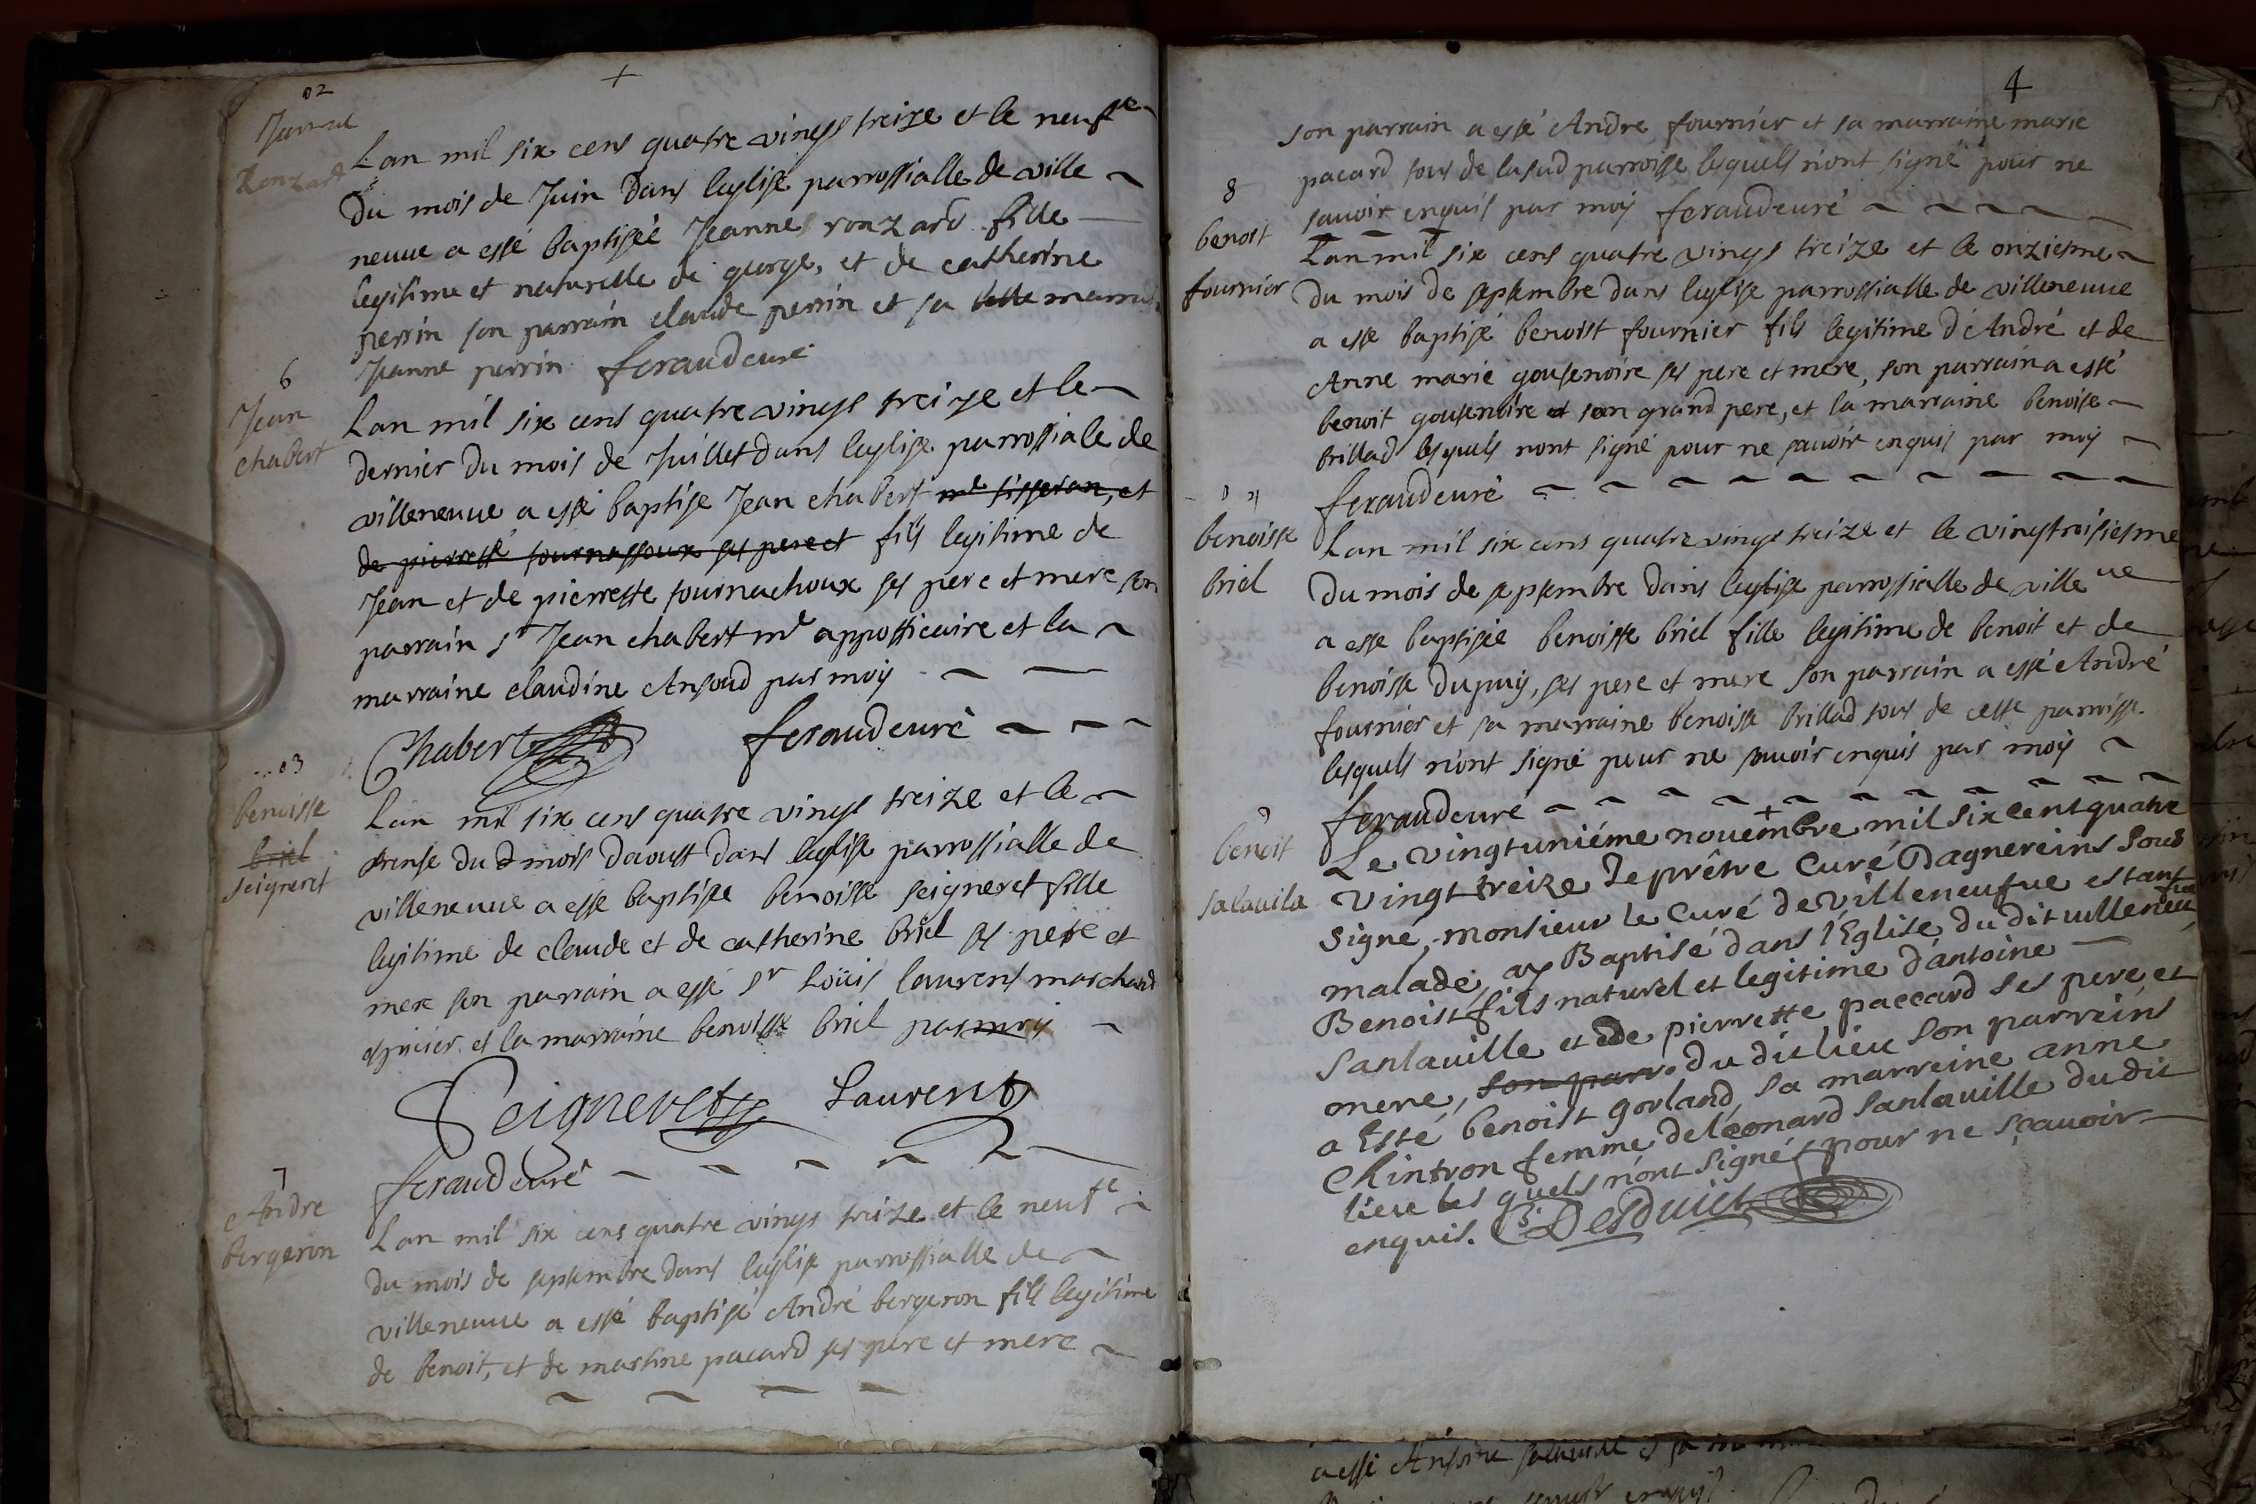 02
+
Jeanne
Ronzard
Lan mil six cens quatre vingts treize et le neufe
Du mois de Juin Dans leglise parrossialle de ville
neuue a esté baptisée Jeanne ronzard fille
legitime et naturelle de george, et de catherine
perrin son parrain claude perrin et sa marrai
Jeanne perrin feraud curé
6
Jean
chabert
Lan mil six cens quatre vingts treize et le
dernier Du mois de Juillet dans leglise parrossiale de
villeneuue a esté baptise Jean chabert me tisseran, et
de pierrette tournassoux ses pere et fils legitime de
Jean et de pierrette tournachoux ses pere et mere son
parrain sr Jean chabert me appotticaire et la
marraine claudine Ansoud par moy
Chabert feraud curé
03
benoisse
briel
seigneret
Lan mil six cens quatre vingts treize et le
trense du d mois daoust dans leglise parrossialle de
villeneuue a esse baptisee benoisse seigneret fille
legitime de claude et de catherine briel ses pere et
mere son parrain a essé sr Loüis laurens marchand
epicier et la marraine benoisse briel par moy
Seigneret Laurent
feraud curé
7
Andre
bergeron
Lan mil six cens quatre vingts treize et le neufe
du mois de septembre dans leglise parrossialle de
villeneuue a essé baptisé André bergeron fils legitime
de benoit, et de martine pacard ses pere et mere
4
son parrain a essé Andre fournier et sa marraine marie
pacard tous de lasud parroisse lesquels n'ont signé pour ne
sauoir enquis par moy feraud curé
8
benoit
fournier
Lan mil six cens quatre vingts treize et le onziesme
du mois de septembre dans leglise parrossialle de villeneuue
a esse baptisé benoist fournier fils legitime d'André et de
Anne marie gousenoire ses pere et mere, son parrain a essé
benoit gousenoire et son grand pere, et la marraine benoise
brillad lesquels nont signé pour ne sauoir enquis par moy
feraud curé
benoisse
briel
Lan mil six cens quatre vingts treize et le vingtroisiesme
Du mois de septembre dans leglise parrossialle de ville ue
a esse baptisée benoisse briel fille legitime de benoit et de
benoisse dupuy, ses pere et mere son parrain a essé André
fournier et sa marraine benoisse brillad tous de cesse parroisse.
lesquels n'ont signé pour ne sauoir enquis par moy
feraud curé
9
benoit
salauila
+
Le vingtuniéme nouembre mil six cent quatre
vingt treize Je prêtre Curé Dagnereins sous
Signé, monsieur le Curé de villeneufue estant
malade, ay Baptisé dans l'Eglise du dit villeneufue
Benoist fils naturel et legitime d'antoine
Sanlauille et de pierrette paccard ses pere et
mere, son parr. Du dit lieu son parreins
a Esté benoist gorland, sa marreine anne
Chintron femme de léonard sanlauille du dit
lieu les quels n'ont signés pour ne sçauoir
enquis. Desduict
a esse Ansoine salauille et sa